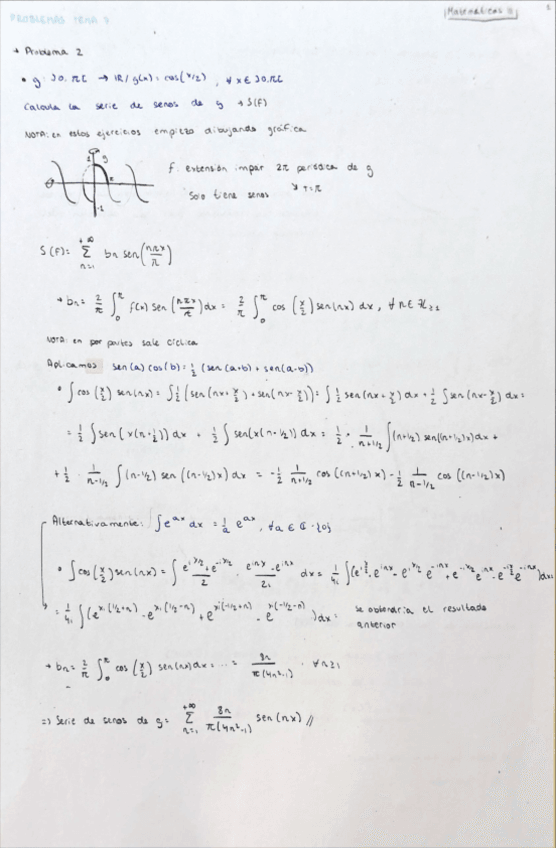 PROBLEMAS TEMA 7
Matemáticas II
1
→ Problema 2
• g: ]0,π[ → ℝ / g(x) = cos(x/2), ∀ x ∈ ]0,π[
Calcula la serie de senos de g → S(f)
NOTA: en estos ejercicios empiezo dibujando gráfica
f: extensión impar 2π periódica de g
Solo tiene senos ↘ T=π
S(f) = Σ_{n=1}^{+∞} bn sen(nπx/π)
→ bn = 2/π ∫_0^π f(x) sen(nπx/π) dx = 2/π ∫_0^π cos(x/2) sen(nx) dx, ∀ n ∈ ℕ≥1
NOTA: en por partes sale cíclica
Aplicamos: sen(a) cos(b) = 1/2 (sen(a+b) + sen(a-b))
• ∫cos(x/2) sen(nx) = ∫1/2 (sen(nx + x/2) + sen(nx - x/2)) = ∫ 1/2 sen(nx + x/2) dx + 1/2 ∫ sen(nx - x/2) dx =
= 1/2 ∫ sen(x(n+1/2)) dx + 1/2 ∫ sen(x(n-1/2)) dx = 1/2 · 1/(n+1/2) ∫(n+1/2) sen((n+1/2)x) dx +
+ 1/2 · 1/(n-1/2) ∫ (n-1/2) sen((n-1/2)x) dx = -1/2 1/(n+1/2) cos((n+1/2)x) - 1/2 1/(n-1/2) cos((n-1/2)x)
Alternativamente: ∫e^{ax} dx = 1/a e^{ax}, ∀a ∈ ℂ-{0}
• ∫cos(x/2) sen(nx) = ∫ (e^{i x/2} + e^{-i x/2})/2 · (e^{inx} - e^{-inx})/2i dx = 1/4i ∫(e^{i x/2} · e^{inx} - e^{i x/2} e^{-inx} + e^{-i x/2} e^{inx} - e^{-i x/2} e^{-inx}) dx =
= 1/4i ∫(e^{xi(1/2+n)} - e^{xi(1/2-n)} + e^{xi(-1/2+n)} - e^{xi(-1/2-n)}) dx = se obtendría el resultado
anterior
→ bn = 2/π ∫_0^π cos(x/2) sen(nx) dx = ... = 8n/(π(4n²-1)) · ∀n≥1
⇒ Serie de senos de g = Σ_{n=1}^{+∞} 8n/(π(4n²-1)) sen(nx) //